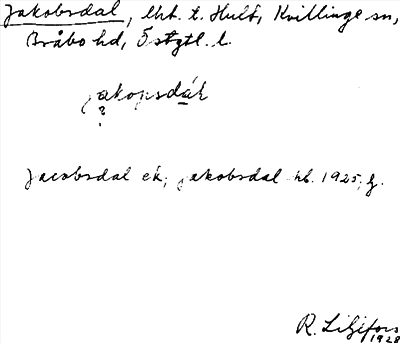 Jakobsdal, lht. t. Hult, Kvillinge sn,
Bråbo hd, Östgtl. l.
jakopsdál
?
Jacobsdal ek; Jakobsdal hb. 1925; J.
R. Liljefors
1928